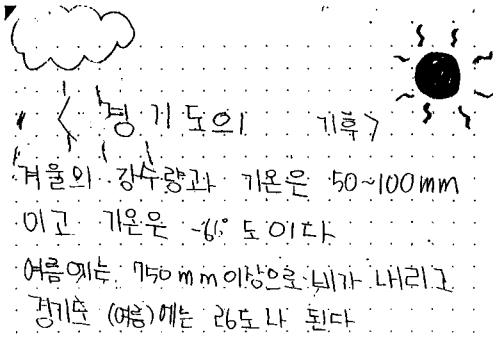 <경기도의 기후>
겨울의 강수량과 기온은 50~100mm
이고 기온은 -6° 도이다
여름에는 750mm이상으로 비가 내리고
경기도 (여름)에는 26도나 된다